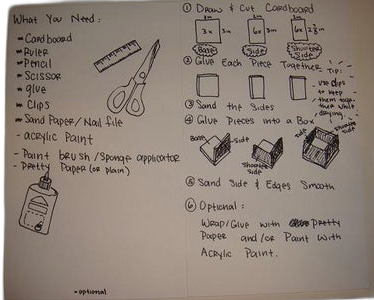 What You Need:
- Cardboard
- Ruler
- Pencil
- Scissor
- glue
- Clips
- Sand Paper/Nail file
- acrylic Paint
- Paint brush/Sponge applicator
- Pretty Paper (or plain)
- optional
① Draw & Cut Cardboard
3x 3in
Base
6x 3in
Side
6x 2
Shorter Side
② Glue Each Piece Together
Tip:
use clips
to keep
them toge-
ther while
drying.
③ Sand the Sides
④ Glue Pieces into a Box
Base
Side
Shorter
Side
Side
Shorter
Side
⑤ Sand Side & Edges Smooth
⑥ Optional:
Wrap/Glue with pretty
Paper and/or Paint with
Acrylic Paint.